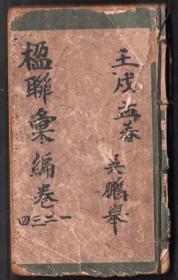 壬戌孟春
吴鵬舉
楹聯彙編卷
一二三四